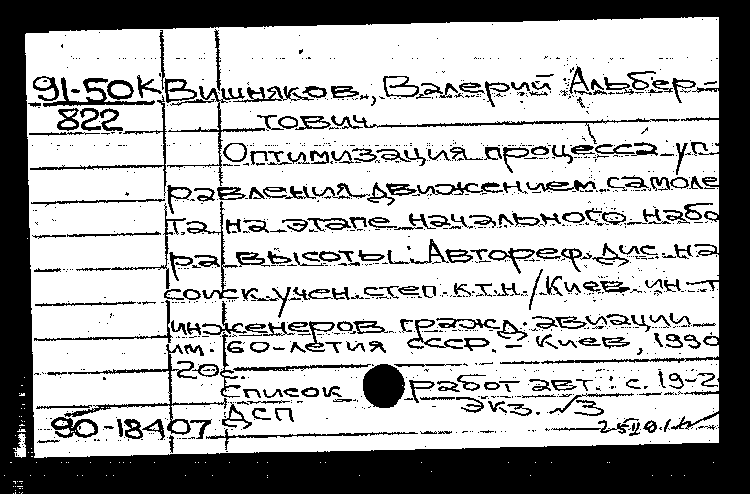 91-50К Вишняков, Валерий Альбер-
822 тович
Оптимизация процесса уп-
равления движением самоле
та на этапе начального набо
ра высоты: Автореф. дис. на
соиск. учен. степ. к.т.н. / Киев. ин-т
инженеров гражд. авиации
им. 60-летия СССР. - Киев, 1990
20с.
Список работ авт.: с. 19-2
ДСП экз. √3
90-18407